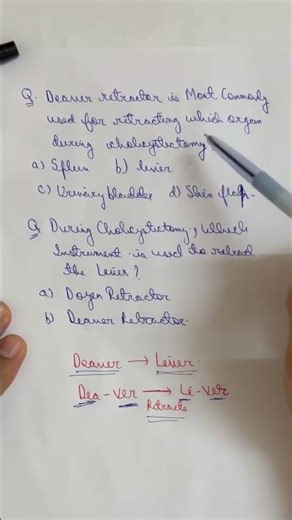 Q. Deaver retractor is Most Commonly
used for retracting which organ
during cholecystectomy
a) Spleen b) liver
c) Urinary bladder d) Skin flap.
Q During Cholecystectomy, which
Instrument is used to retract
the Liver?
a) Doyen Retractor
b) Deaver Retractor.
Deaver → Liver.
Dea-Ver → Li-Ver
Retracts